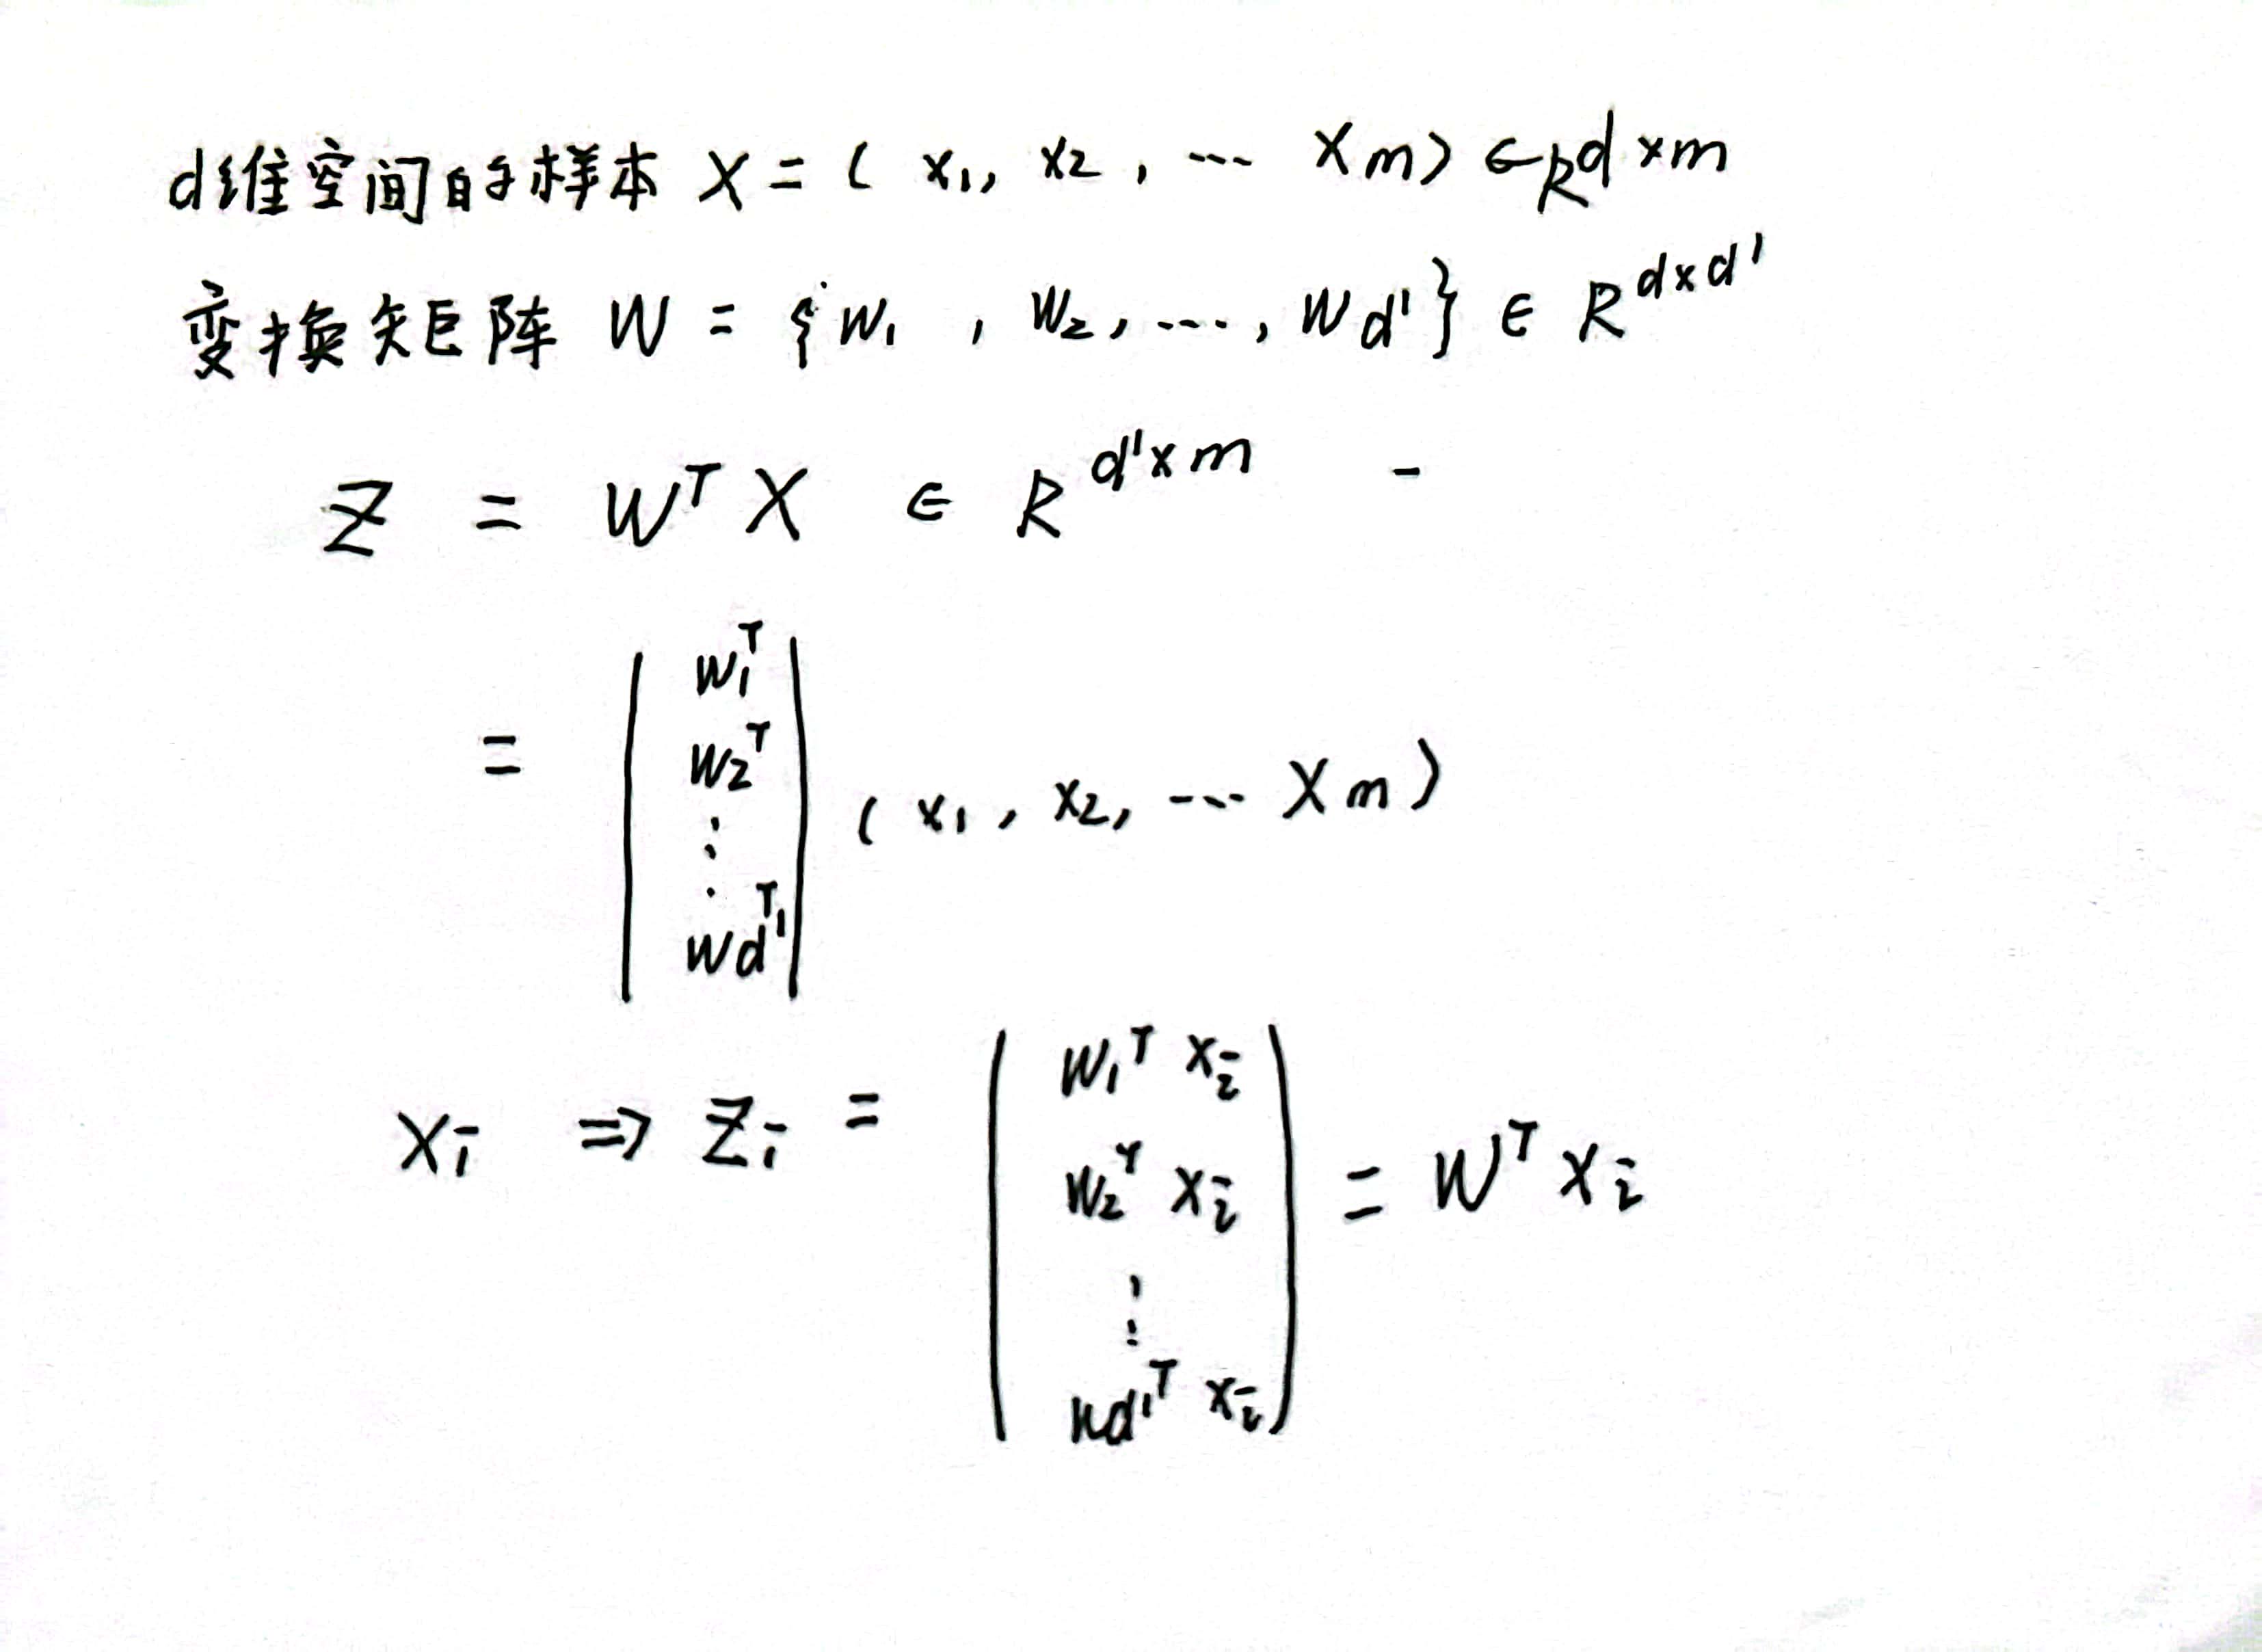 d维空间的样本 X = ( x₁, x₂, ... Xm ) ∈ R^{d×m}
变换矩阵 W = { w₁ , w₂, ..., w_{d'} } ∈ R^{d×d'}
Z = W^T X ∈ R^{d'×m} -
w₁^T
w₂^T
⋮
= ( x₁, x₂, ... Xm )
w_{d'}^T
w₁^T x_i
x_i ⇒ Z_i = w₂^T x_i = W^T x_i
⋮
w_{d'}^T x_i